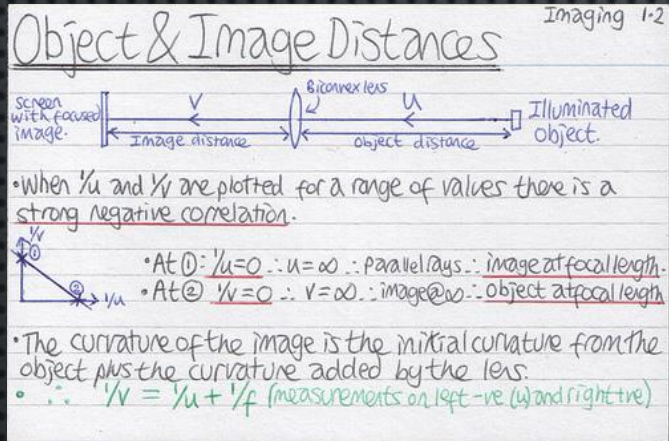 Imaging 1.2
Object & Image Distances
screen with focused image.
V
Biconvex lens
u
Illuminated object.
Image distance
object distance
•When 1/u and 1/v are plotted for a range of values there is a
strong negative correlation.
1/v
①
②
1/u
•At ①: 1/u=0 ∴ u=∞ ∴ parallel rays ∴ image at focal length.
•At ② 1/v=0 ∴ v=∞ ∴ image@∞ ∴ object at focal length
•The curvature of the image is the initial curvature from the
object plus the curvature added by the lens.
• ∴ 1/v = 1/u + 1/f (measurements on left -ve (u) and right +ve)